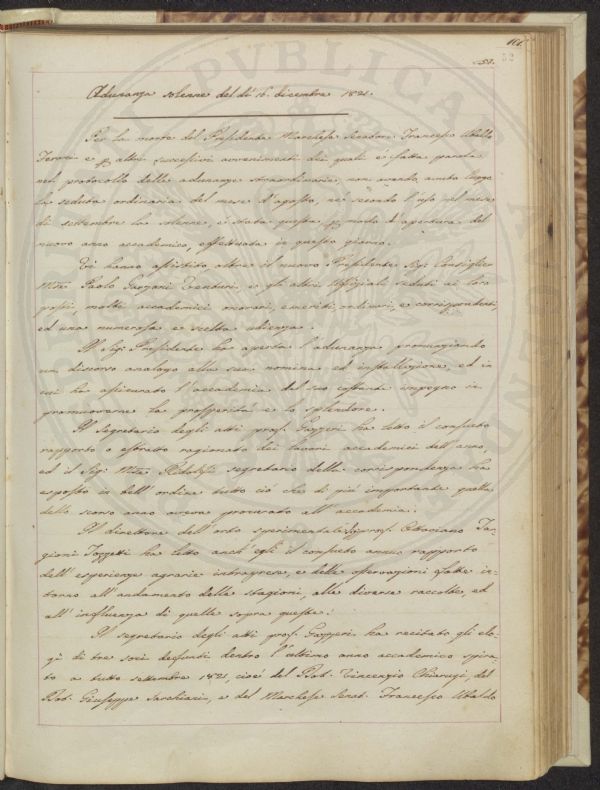 101.
53.
52
Adunanza solenne del dì 16. dicembre 1821.
Per la morte del Presidente Marchese Senatore Francesco Ubaldo
Feroni e p altri successivi avvenimenti dei quali è fatta parola
nel protocollo delle adunanze straordinarie, non avendo avuto luogo
la seduta ordinaria del mese d'agosto, nè secondo l'uso nel mese
di settembre la solenne, è stata questa p modo d'apertura del
nuovo anno accademico, effettuata in questo giorno.
Vi hanno assistito oltre il nuovo Presidente Sig. Consiglier
March. Paolo Garzoni Venturi, e gli altri Uffiziali seduti ai loro
posti, molti accademici onorari, emeriti, ordinari, e corrispondenti,
ed una numerosa e scelta udienza.
Il Sig. Presidente ha aperta l'adunanza pronunziando
un discorso analogo alla sua nomina ed installazione, ed in
cui ha assicurato l'accademia del suo costante impegno in
promuoverne la prosperità e lo splendore.
Il Segretario degli atti prof. Gazzeri ha letto il consueto
rapporto o estratto ragionato dei lavori accademici dell'anno,
ed il Sig. March. Ridolfi segretario delle corrispondenze ha
esposto in bell'ordine tutto ciò che di più importante quelle
dello scorso anno avevano procurato all'accademia.
Il direttore dell'orto sperimentale Sig. prof. Ottaviano Tar-
gioni Tozzetti ha letto anch'egli il consueto annuo rapporto
dell'esperienze agrarie intraprese, e delle osservazioni fatte in-
torno all'andamento delle stagioni, alle diverse raccolte, ed
all'influenza di quelle sopra queste.
Il segretario degli atti prof. Gazzeri ha recitato gli elo-
gi di tre soci defunti dentro l'ultimo anno accademico spira-
to a tutto settembre 1821, cioè del Dott. Vincenzio Chiarugi, del
Dott. Giuseppe Sarchiani, e del Marchese Senat. Francesco Ubaldo